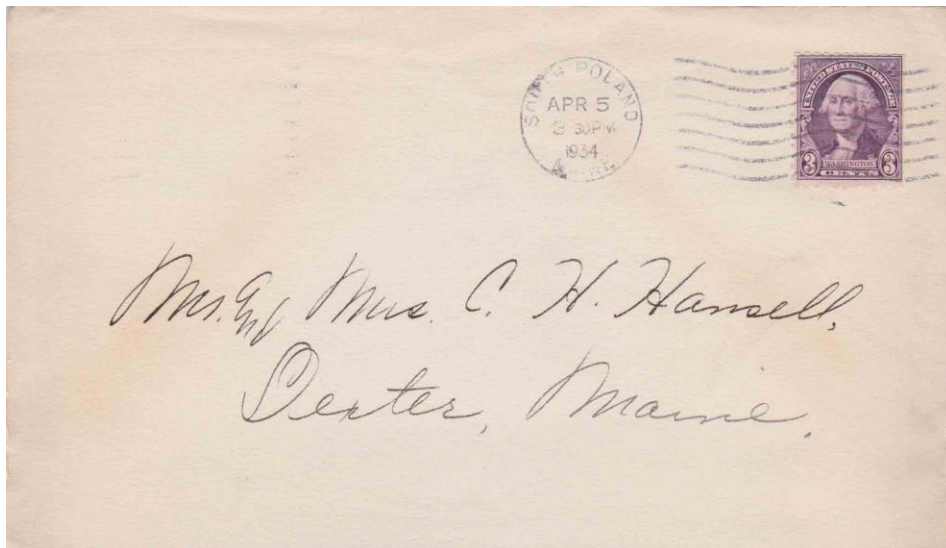 SOUTH POLAND
APR 5
3 30 PM
1934
UNITED STATES POSTAGE
3 WASHINGTON 3
CENTS
Mr. and Mrs. C. H. Hansell,
Dexter, Maine.